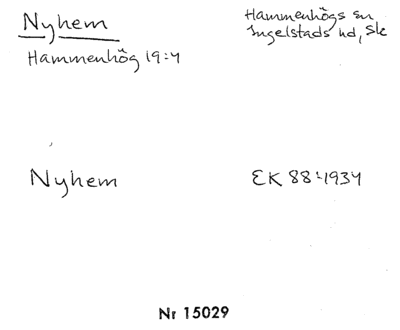 Nyhem
Hammenhögs sn
Ingelstads hd, Sk
Hammenhög 19:4
Nyhem
EK 88:1934
Nr 15029